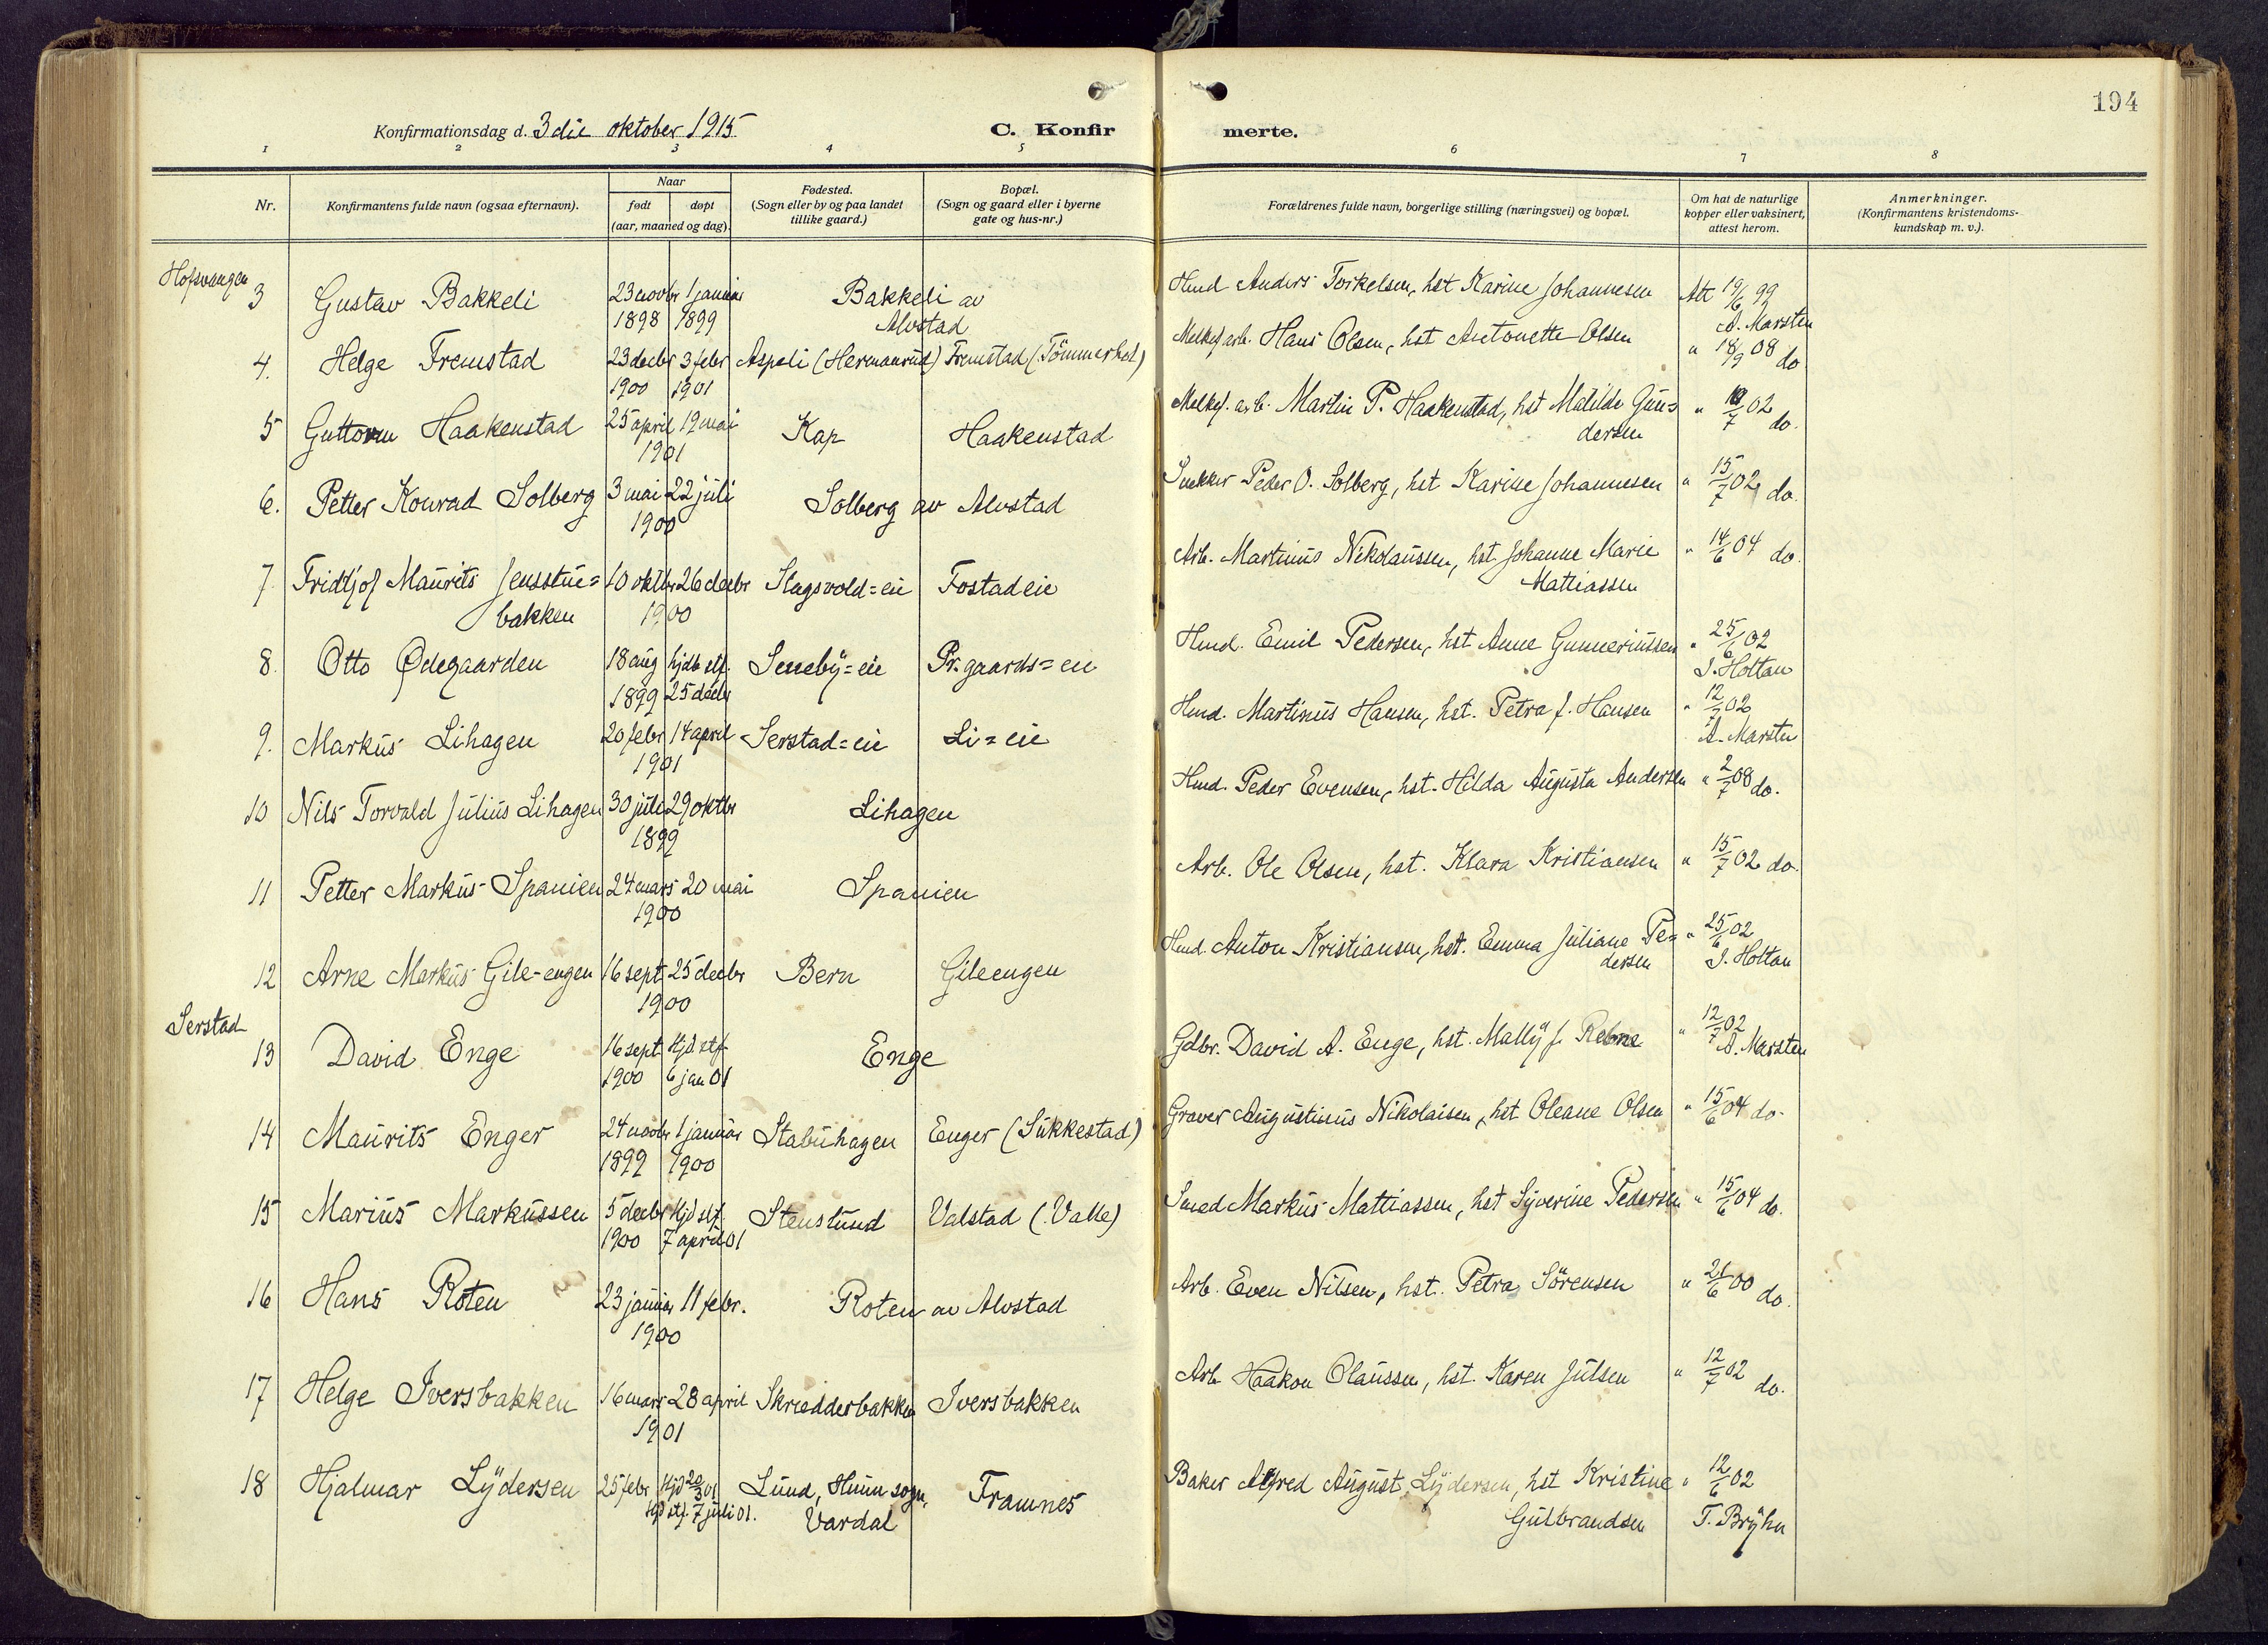 194
Konfirmationsdag d. 3die oktober 1915.
C. Konfir merte.
1 2 3 4 5 6 7 8
Nr.
Konfirmantens fulde navn (ogsaa efternavn).
Naar
født døpt
(aar, maaned og dag).
Fødested.
(Sogn eller by og paa landet
tillike gaard.)
Bopæl.
(Sogn og gaard eller i byerne
gate og hus-nr.)
Forældrenes fulde navn, borgerlige stilling (næringsvei) og bopæl.
Om hat de naturlige
kopper eller vaksinert,
attest herom.
Anmerkninger.
(Konfirmantens kristendoms-
kundskap m. v.).
Hofsvangen
3 Gustav Bakkeli 23 novbr 1 januar Bakkeli av Hmd Anders Torkelsen, hst Karine Johannesen Att 19/6 99
1898 1899 Alvstad A. Marsten
4. Helge Fremstad 23 decbr 3 febr Aspeli (Hermanrud) Fremstad (Tömmerhol) Melkef. arb. Hans Olsen, hst Antonette Olsen " 18/9 08 do
1900 1901
5 Guttorm Haakenstad 25 april 19 mai Kap Haakenstad Melkef. arb. Martin P. Haakenstad, hst Matilde Gun=
1901 dersen " /7 02 do.
6. Petter Konrad Solberg 3 mai 22 juli Solberg av Alvstad Snekker Peder O. Solberg, hst Karine Johannesen " 15/7 02 do.
1900
7 Fridtjof Maurits Jensstue= 10 oktbr 26 decbr Slagsvold=eie Fostadeie Arb. Martinus Nikolaussen, hst. Johanne Marie " 14/6 04 do.
bakken 1900 Mattiassen
8. Otto Ødegaarden 18 aug hjdb stf. Seneby=eie Pr.gaards=eie Hmd. Emil Pedersen, hst Anne Gunneriussen " 25/6 02
1899 25 decbr J. Holtan
9. Markus Lihagen 20 febr 14 april Serstad=eie Li=eie Hmd. Martinus Hansen, hst. Petra f. Hansen " 12/7 02
1901 A. Marsten
10 Nils Torvald Julius Lihagen 30 juli 29 oktbr Lihagen Hmd. Peder Evensen, hst. Hilda Augusta Andersen " 2/7 08 do.
1899
11 Petter Markus Spanien 24 mars 20 mai Spanien Arb. Ole Olsen, hst. Klara Kristiansen " 15/7 02 do.
1900
12 Arne Markus Gile-engen 16 sept 25 decbr Bern Gileengen Hmd. Anton Kristiansen, hst. Emma Juliane Pe= " 25/6 02
1900 dersen J. Holtan
Serstad
13 David Enge 16 sept Hjd stf Enge Gdbr. David A. Enge, hst. Mally f. Rebne " 12/7 02
1900 6 jan 01 A. Marsten
14 Maurits Enger 24 novbr 1 januar Stabuhagen Enger (Sukkestad) Graver Augustinus Nikolaisen, hst Oleane Olsen " 15/6 04 do.
1899 1900
15 Marius Markussen 5 decbr Hjd stf. Stenslund Valstad (Valle) Smed Markus Mattiassen, hst Syverine Pedersen " 15/6 04 do.
1900 7 april 01
16 Hans Roten 23 januar 11 febr. Roten av Alvstad Arb. Even Nilsen, hst. Petra Sörensen " 21/6 00 do.
1900
17 Helge Iversbakken 16 mars 28 april Skrædderbakken Iversbakken Arb Haakon Olaussen, hst. Karen Julsen " 12/7 02 do.
1901
18 Hjalmar Lydersen 25 febr Hjd 20/3 01 Lund, Hunn sogn, Framnes Baker Alfred August Lydersen, hst Kristine " 12/6 02
stf. 7 juli 01. Vardal Gulbrandsen T. Bryhn